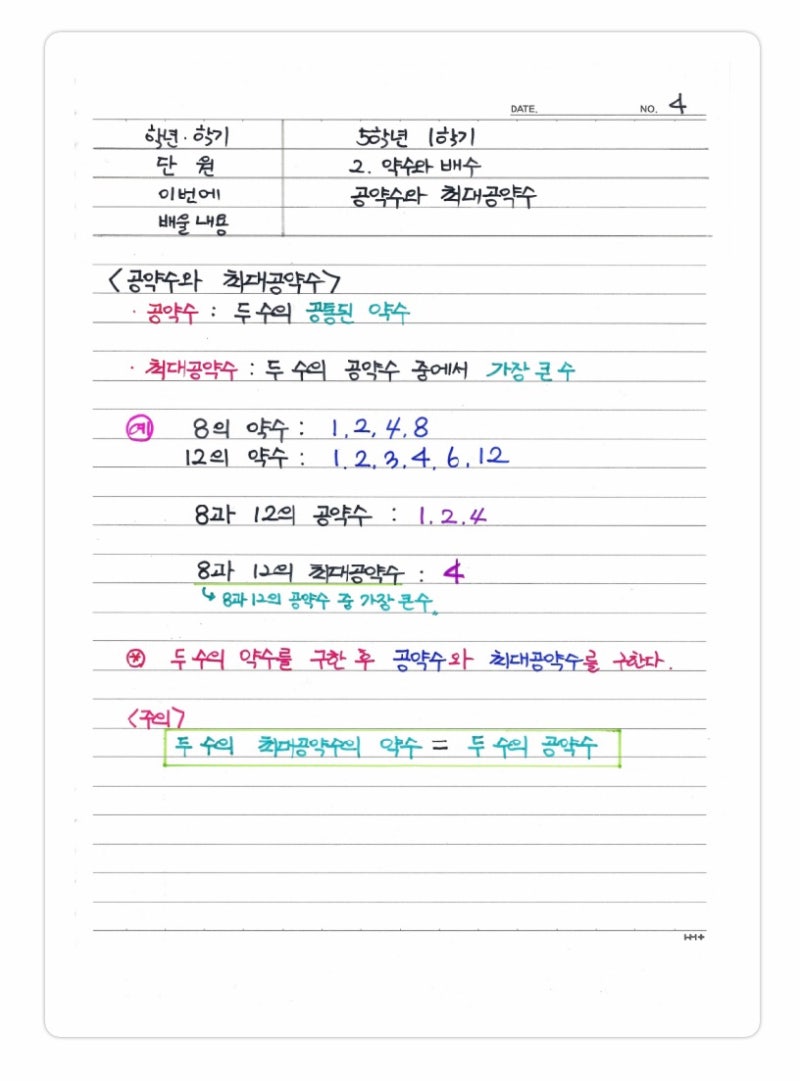 DATE. NO. 4
학년·학기 5학년 1학기
단 원 2. 약수와 배수
이번에 공약수와 최대공약수
배울 내용
<공약수와 최대공약수>
· 공약수 : 두 수의 공통된 약수
· 최대공약수 : 두 수의 공약수 중에서 가장 큰 수
예 8의 약수 : 1, 2, 4, 8
12의 약수 : 1, 2, 3, 4, 6, 12
8과 12의 공약수 : 1, 2, 4
8과 12의 최대공약수 : 4
↳ 8과 12의 공약수 중 가장 큰 수.
* 두 수의 약수를 구한 후 공약수와 최대공약수를 구한다.
<주의>
두 수의 최대공약수의 약수 = 두 수의 공약수